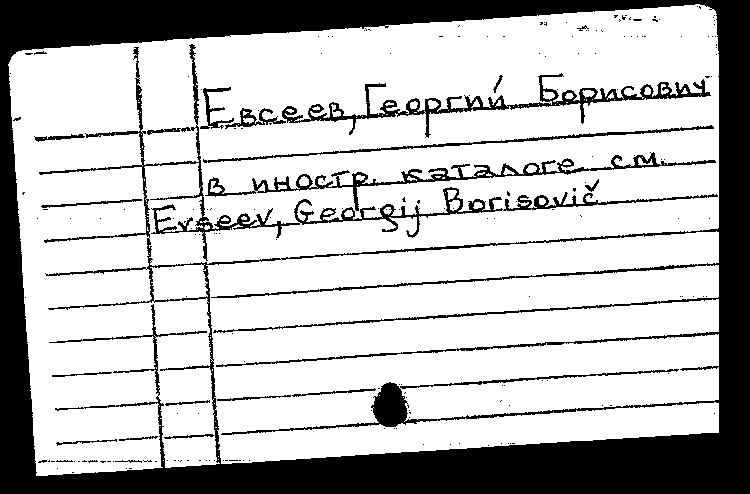 Евсеев, Георгий Борисович
в иностр. каталоге см.
Evseev, Georgij Borisovič